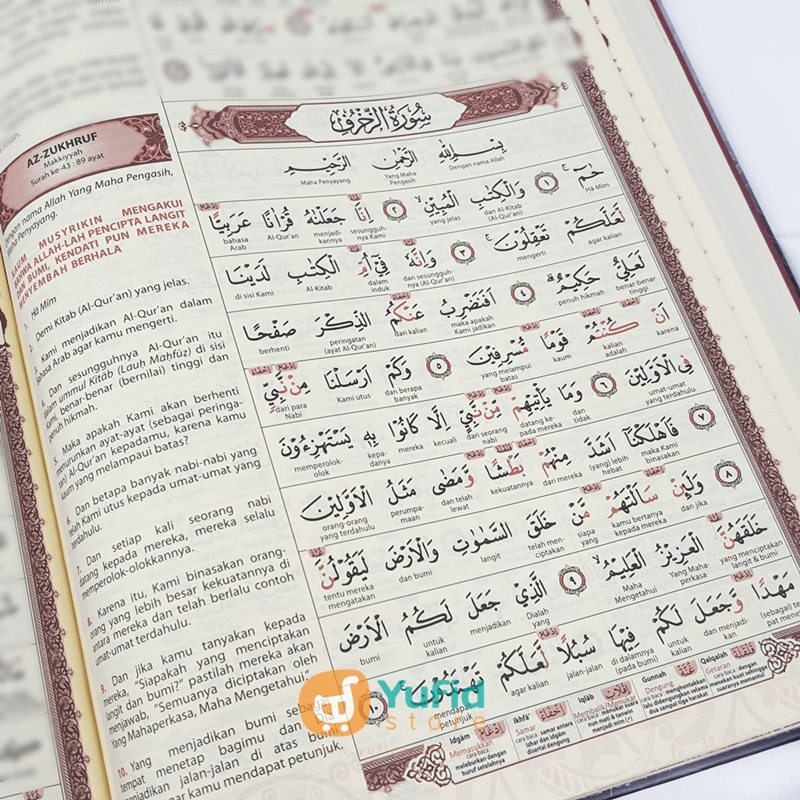 AZ-ZUKHRUF
Makkiyyah
Surah ke-43 : 89 ayat
Dengan nama Allah Yang Maha Pengasih,
Maha Penyayang.
KAUM MUSYRIKIN MENGAKUI
BAHWA ALLAH-LAH PENCIPTA LANGIT
DAN BUMI, KENDATI PUN MEREKA
MENYEMBAH BERHALA
1. Hā Mīm
2. Demi Kitab (Al-Qur'an) yang jelas.
3. Kami menjadikan Al-Qur'an dalam
bahasa Arab agar kamu mengerti.
4. Dan sesungguhnya Al-Qur'an itu
dalam ummul Kitāb (Lauh Mahfūz) di sisi
Kami, benar-benar (bernilai) tinggi dan
penuh hikmah.
5. Maka apakah Kami akan berhenti
menurunkan ayat-ayat (sebagai peringa-
tan) Al-Qur'an kepadamu, karena kamu
kaum yang melampaui batas?
6. Dan betapa banyak nabi-nabi yang
telah Kami utus kepada umat-umat yang
terdahulu.
7. Dan setiap kali seorang nabi
datang kepada mereka, mereka selalu
memperolok-olokkannya.
8. Karena itu, Kami binasakan orang-
orang yang lebih besar kekuatannya di
antara mereka dan telah berlalu contoh
umat-umat terdahulu.
9. Dan jika kamu tanyakan kepada
mereka, "Siapakah yang menciptakan
langit dan bumi?" Pastilah mereka akan
menjawab, "Semuanya diciptakan oleh
Yang Mahaperkasa, Maha Mengetahui,"
10. Yang menjadikan bumi sebagai
tempat menetap bagimu dan Dia
menjadikan jalan-jalan di atas bumi
agar kamu mendapat petunjuk.
سُورَةُ الزُّخْرُفِ
بِسْمِ اللهِ الرَّحْمٰنِ الرَّحِيْمِ
Dengan nama Allah Yang Maha Pengasih Maha Penyayang
حٰمۤ ۚ ١ وَالْكِتٰبِ الْمُبِيْنِ ۙ ٢ اِنَّا جَعَلْنٰهُ قُرْاٰنًا عَرَبِيًّا
Ha Mim dan Al-Kitab (Al-Qur'an) yang jelas sesungguh-nya Kami menjadi-kannya Al-Qur'an bahasa Arab
لَّعَلَّكُمْ تَعْقِلُوْنَ ۚ ٣ وَاِنَّهٗ فِيْٓ اُمِّ الْكِتٰبِ لَدَيْنَا
agar kalian mengerti dan sesungguh-nya (Al-Qur'an) dalam induk Al-Kitab di sisi Kami
لَعَلِيٌّ حَكِيْمٌ ۗ ٤ اَفَنَضْرِبُ عَنْكُمُ الذِّكْرَ صَفْحًا
benar-benar tinggi penuh hikmah maka apakah Kami jadikan dari kalian peringatan (ayat Al-Qur'an) berhenti
اَنْ كُنْتُمْ قَوْمًا مُّسْرِفِيْنَ ٥ وَكَمْ اَرْسَلْنَا مِنْ نَّبِيٍّ
karena kalian adalah kaum yang melampui batas dan berapa banyak Kami utus dari para Nabi
فِى الْاَوَّلِيْنَ ٦ وَمَا يَأْتِيْهِمْ مِّنْ نَّبِيٍّ اِلَّا كَانُوْا بِهٖ يَسْتَهْزِءُوْنَ ٧
umat-umat yang terdahulu dan tidak datang ke-pada mereka dari seorang nabi kecuali mereka kepa-danya memperolok-olok
فَاَهْلَكْنَآ اَشَدَّ مِنْهُمْ بَطْشًا وَّمَضٰى مَثَلُ الْاَوَّلِيْنَ ٨
maka Kami binasakan (yang) lebih hebat dari mereka kekuatannya dan telah lewat perumpa-maan orang-orang yang terdahulu
وَلَىِٕنْ سَاَلْتَهُمْ مَّنْ خَلَقَ السَّمٰوٰتِ وَالْاَرْضَ لَيَقُوْلُنَّ
dan jika kamu bertanya kepada mereka siapa yang telah men-ciptakan langit dan bumi tentu mereka mengatakan
خَلَقَهُنَّ الْعَزِيْزُ الْعَلِيْمُ ۙ ٩ الَّذِيْ جَعَلَ لَكُمُ الْاَرْضَ
yang menciptakan langit & bumi Yang Maha-perkasa Maha Mengetahui Dialah yang menjadikan untuk kalian bumi
مَهْدًا وَّجَعَلَ لَكُمْ فِيْهَا سُبُلًا لَّعَلَّكُمْ تَهْتَدُوْنَ ١٠
dan menjadi-kan untuk kalian di dalamnya (pada bumi) jalan-jalan agar kalian mendapat
Idgām Memasukkan cara baca: meleburkan dengan huruf setelahnya
Ikhfā' Samar cara baca: samar antara izhar dan idgām disertai dengung
Iqlāb Membalik/Menukar
Gunnah Dengung
Qalqalah Getaran
Yufid
store